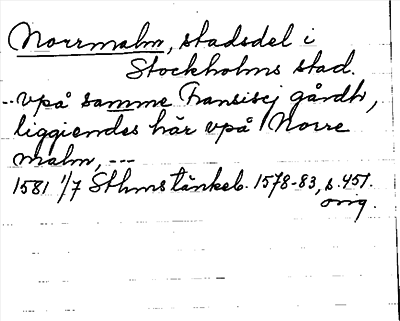 Norrmalm, stadsdel i
Stockholms stad.
--vpå samme Fransisej gårdh,
liggiendes här vpå Norre
malm, ---
1581 1/7 Sthms tänkeb. 1578-83, s. 457.
orig.